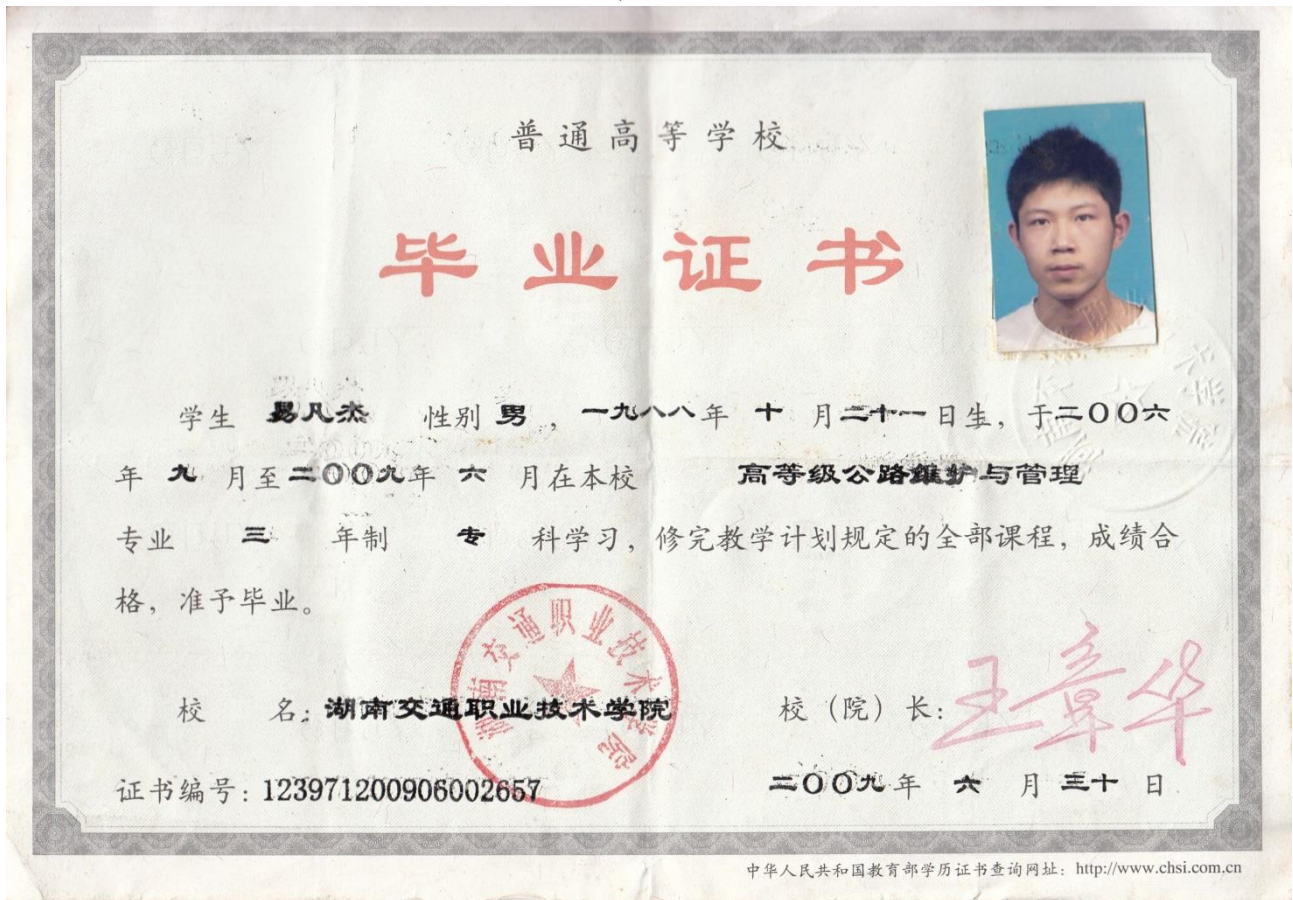 普通高等学校
毕业证书
学生 易凡杰 性别 男，一九八八年 十 月二十一日生，于二〇〇六
年 九 月至二〇〇九年 六 月在本校 高等级公路维护与管理
专业 三 年制 专 科学习，修完教学计划规定的全部课程，成绩合
格，准予毕业。
湖南交通职业技术学院
校 名：湖南交通职业技术学院 校（院）长：王章华
证书编号：123971200906002657 二〇〇九年 六 月 三十 日
中华人民共和国教育部学历证书查询网址：http://www.chsi.com.cn